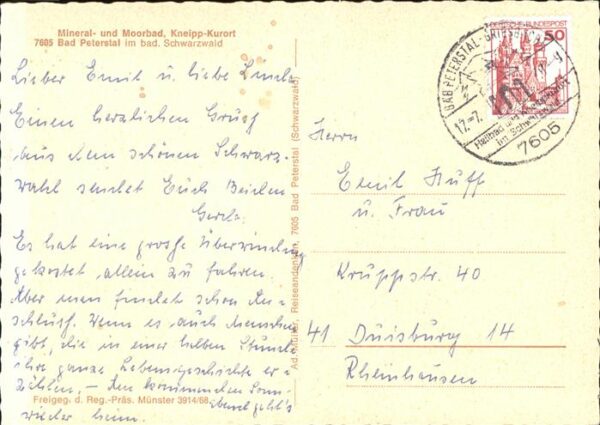 Mineral- und Moorbad, Kneipp-Kurort
7605 Bad Peterstal im bad. Schwarzwald
Lieber Emil u. liebe Linda
Einen herzlichen Gruß
aus dem schönen Schwarz-
wald sendet Euch Beiden
Gerda.
Es hat eine große Überwindung
gekostet allein zu fahren.
Aber man findet schon An-
schluß. Wenn es auch Menschen
gibt, die in einer halben Stunde
ihre ganze Lebensgeschichte er-
zählen, – Am kommenden Sonn-
abend geht's
wieder heim.
Freigeg. d. Reg.-Präs. Münster 3914/68
7605 Bad Peterstal (Schwarzwald)
DEUTSCHE BUNDESPOST
50
BAD PETERSTAL-GRIESBACH
17.-7.
Heilbad und
im Schwarzwald
7605
Herrn
Emil Huff
u. Frau
Kruppstr. 40
41 Duisburg 14
Rheinhausen